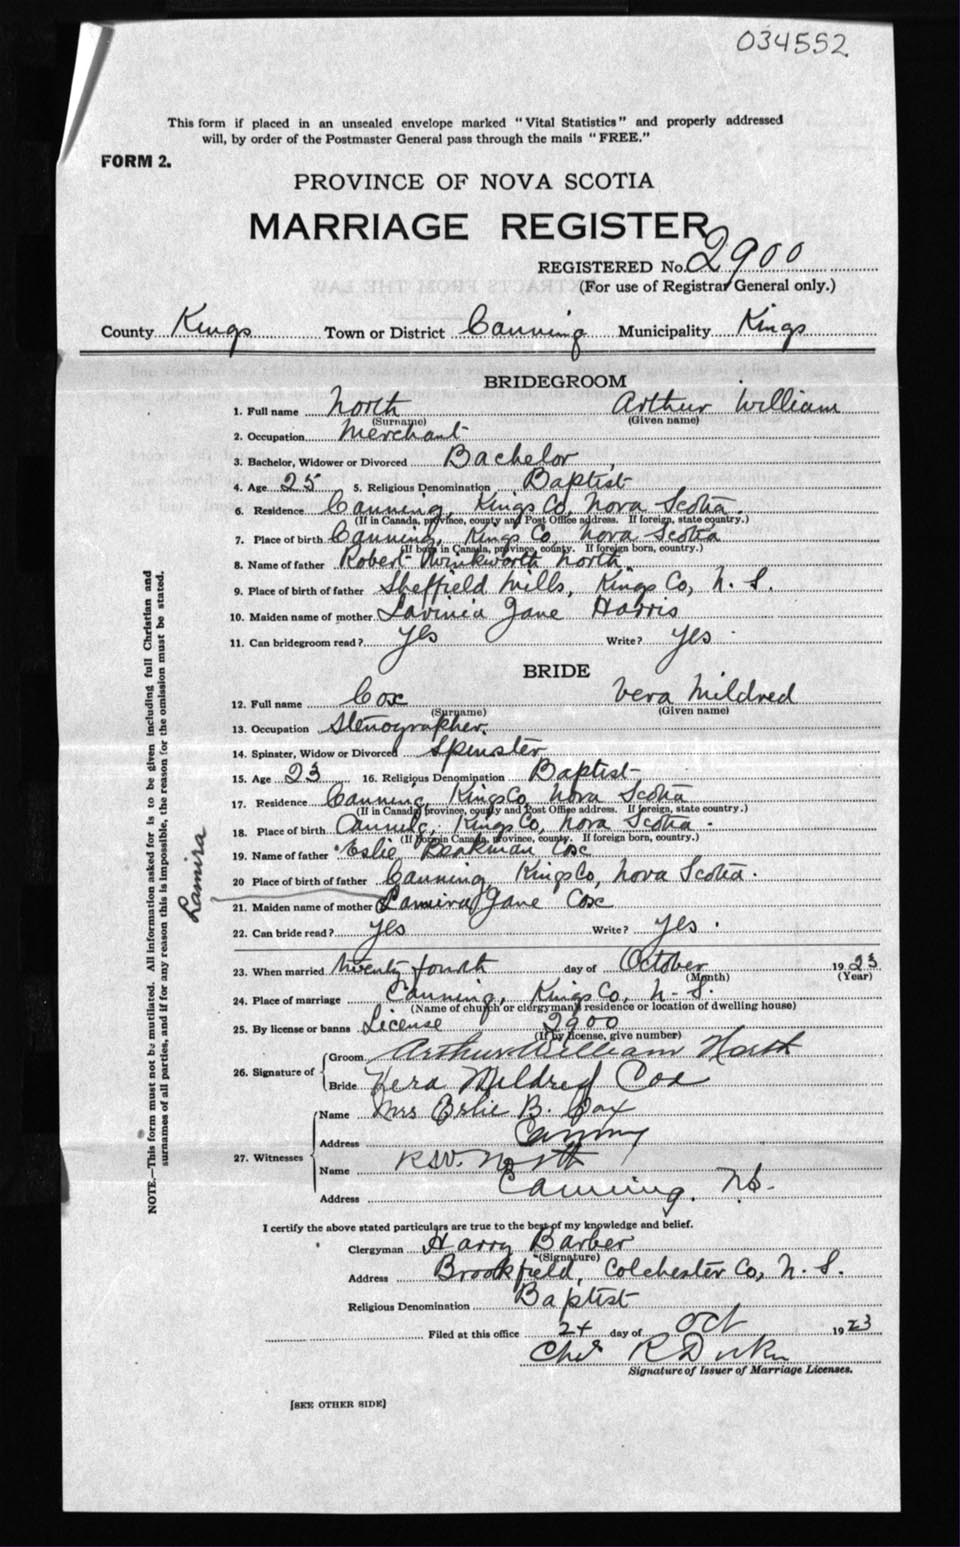 034552
This form if placed in an unsealed envelope marked "Vital Statistics" and properly addressed
will, by order of the Postmaster General pass through the mails "FREE."
FORM 2.
PROVINCE OF NOVA SCOTIA
MARRIAGE REGISTER
REGISTERED No. 2900
(For use of Registrar General only.)
County Kings Town or District Canning Municipality Kings
BRIDEGROOM
1. Full name North Arthur William
(Surname) (Given name)
2. Occupation Merchant
3. Bachelor, Widower or Divorced Bachelor
4. Age 25 5. Religious Denomination Baptist
6. Residence Canning, Kings Co, Nova Scotia.
(If in Canada, province, county and Post Office address. If foreign, state country.)
7. Place of birth Canning, Kings Co, Nova Scotia
(If born in Canada, province, county. If foreign born, country.)
8. Name of father Robert Winkworth North
9. Place of birth of father Sheffield Mills, Kings Co, N. S.
10. Maiden name of mother Lavinia Jane Harris
11. Can bridegroom read? yes Write? yes
BRIDE
12. Full name Cox Vera Mildred
(Surname) (Given name)
13. Occupation Stenographer.
14. Spinster, Widow or Divorced Spinster
15. Age 23 16. Religious Denomination Baptist
17. Residence Canning, Kings Co, Nova Scotia
(If in Canada province, county and Post Office address. If foreign, state country.)
18. Place of birth Canning, Kings Co, Nova Scotia.
(If born in Canada, province, county. If foreign born, country.)
19. Name of father Eslie Beakman Cox
20 Place of birth of father Canning Kings Co, Nova Scotia.
21. Maiden name of mother Lamira Jane Cox
22. Can bride read? yes Write? yes.
23. When married twenty fourth day of October 1923
(Month) (Year)
24. Place of marriage Canning, Kings Co, N. S.
(Name of church or clergyman's residence or location of dwelling house)
25. By license or banns License 2900
(If by license, give number)
26. Signature of
Groom Arthur William North
Bride Vera Mildred Cox
27. Witnesses
Name Mrs Eslie B. Cox
Address Canning
Name R.W. North
Address Canning. N.S.
I certify the above stated particulars are true to the best of my knowledge and belief.
Clergyman Harry Barber
(Signature)
Address Brookfield, Colchester Co, N. S.
Religious Denomination Baptist
Filed at this office 24 day of Oct 1923
Chas R
Signature of Issuer of Marriage Licenses.
[SEE OTHER SIDE]
NOTE.—This form must not be mutilated. All information asked for is to be given including full Christian and
surnames of all parties, and if for any reason this is impossible, the reason for the omission must be stated.
Lamira